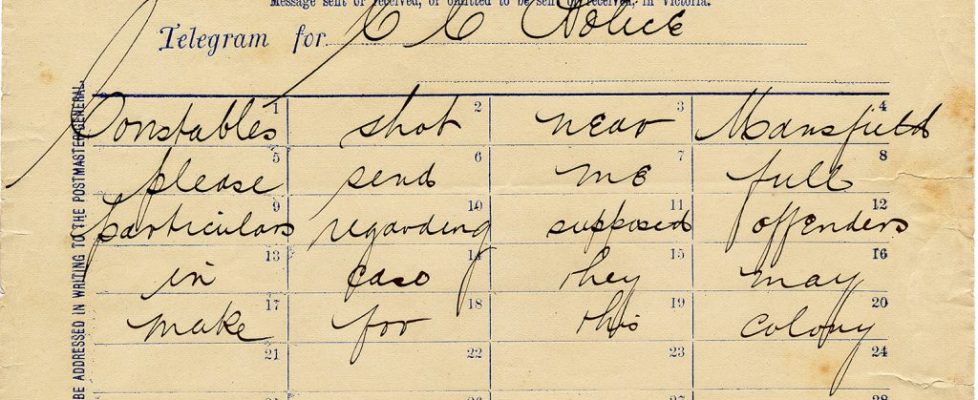 Message sent or received, or omitted to be sent or received, in Victoria.
Telegram for C C Police
1 2 3 4
Constables shot near Mansfield
5 6 7 8
please send me full
9 10 11 12
particulars regarding supposed offenders
13 14 15 16
in case they may
17 18 19 20
make for this colony
21 22 23 24
28
BE ADDRESSED IN WRITING TO THE POSTMASTER-GENERAL.